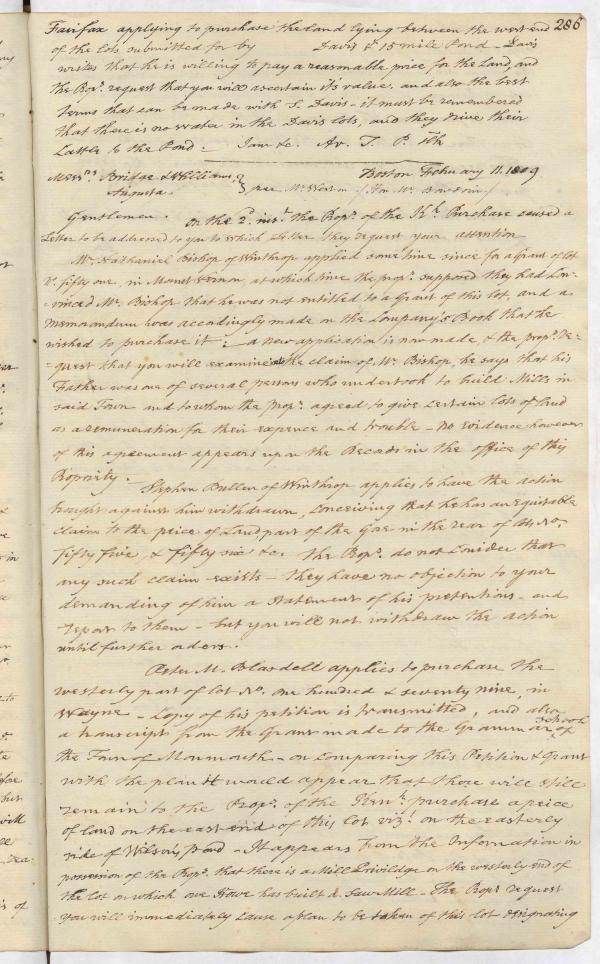 286
Fairfax applying to purchase the land lying between the west end
of the lots submitted for by Davis & 15 mile Pond - Davis
writes that he is willing to pay a reasonable price for the Land, and
the Propr. request that you will ascertain it's value, and also the best
terms that can be made with S. Davis - it must be remembered
that there is no water in the Davis lots, and they drive their
Cattle to the Pond: I am &c. Av. T. P.
Messrs. Bridge & Williams, Boston February 11. 1809
Augusta. } per Mr. Weston (Hon Mr. Bowdoin)
Gentlemen. On the 2d. inst. the Propr. of the Kk. Purchase caused a
Letter to be addressed to you to which Letter they request your attention
Mr. Nathaniel Bishop of Winthrop applied some time since for a Grant of lot
No. fifty one, in Mount Vernon, at which time the propr. supposed they had Con-
vinced Mr. Bishop that he was not entitled to a Grant of this lot, and a
memorandum was accordingly made on the Company's Book that he
wished to purchase it: - a new application is now made, & the propr. re-
-quest that you will examine the claim of Mr. Bishop, he says that his
Father was one of several persons who undertook to build Mills in
said Town and to whom the Propr. agreed to give certain lots of land
as a remuneration for their expence and trouble - no evidence however
of this agreement appears upon the Records in the office of this
Propriety.
Stephen Bullen of Winthrop applies to have the action
brought against him withdrawn, Conceiving that he has an equitable
claim to the peice of Land, part of the Gore in the rear of lots No.
fifty five, & fifty six &c. the Propr. do not Consider that
any such claim exists - they have no objection to your
demanding of him a statement of his pretentions - and
report to them - but you will not withdraw the action
until further orders.
Peter M. Blasdell applies to purchase the
westerly part of lot No. one hundred & seventy nine, in
Wayne - Copy of his petition is transmitted, and also
a transcript from the Grant made to the Grammar school
of
the Town of Monmouth - on comparing this Petition & Grant
with the plan it would appear that there will still
remain to the Propr. of the Kenn. purchase a peice
of land on the east end of this lot vizt. on the easterly
side of Wilson's pond - It appears from the Information in
possession of the Propr. that there is a Mill Priviledge on the westerly end of
the lot on which one Howe has built a Saw Mill - The Propr. request
you will immediately cause a plan to be taken of this lot designating